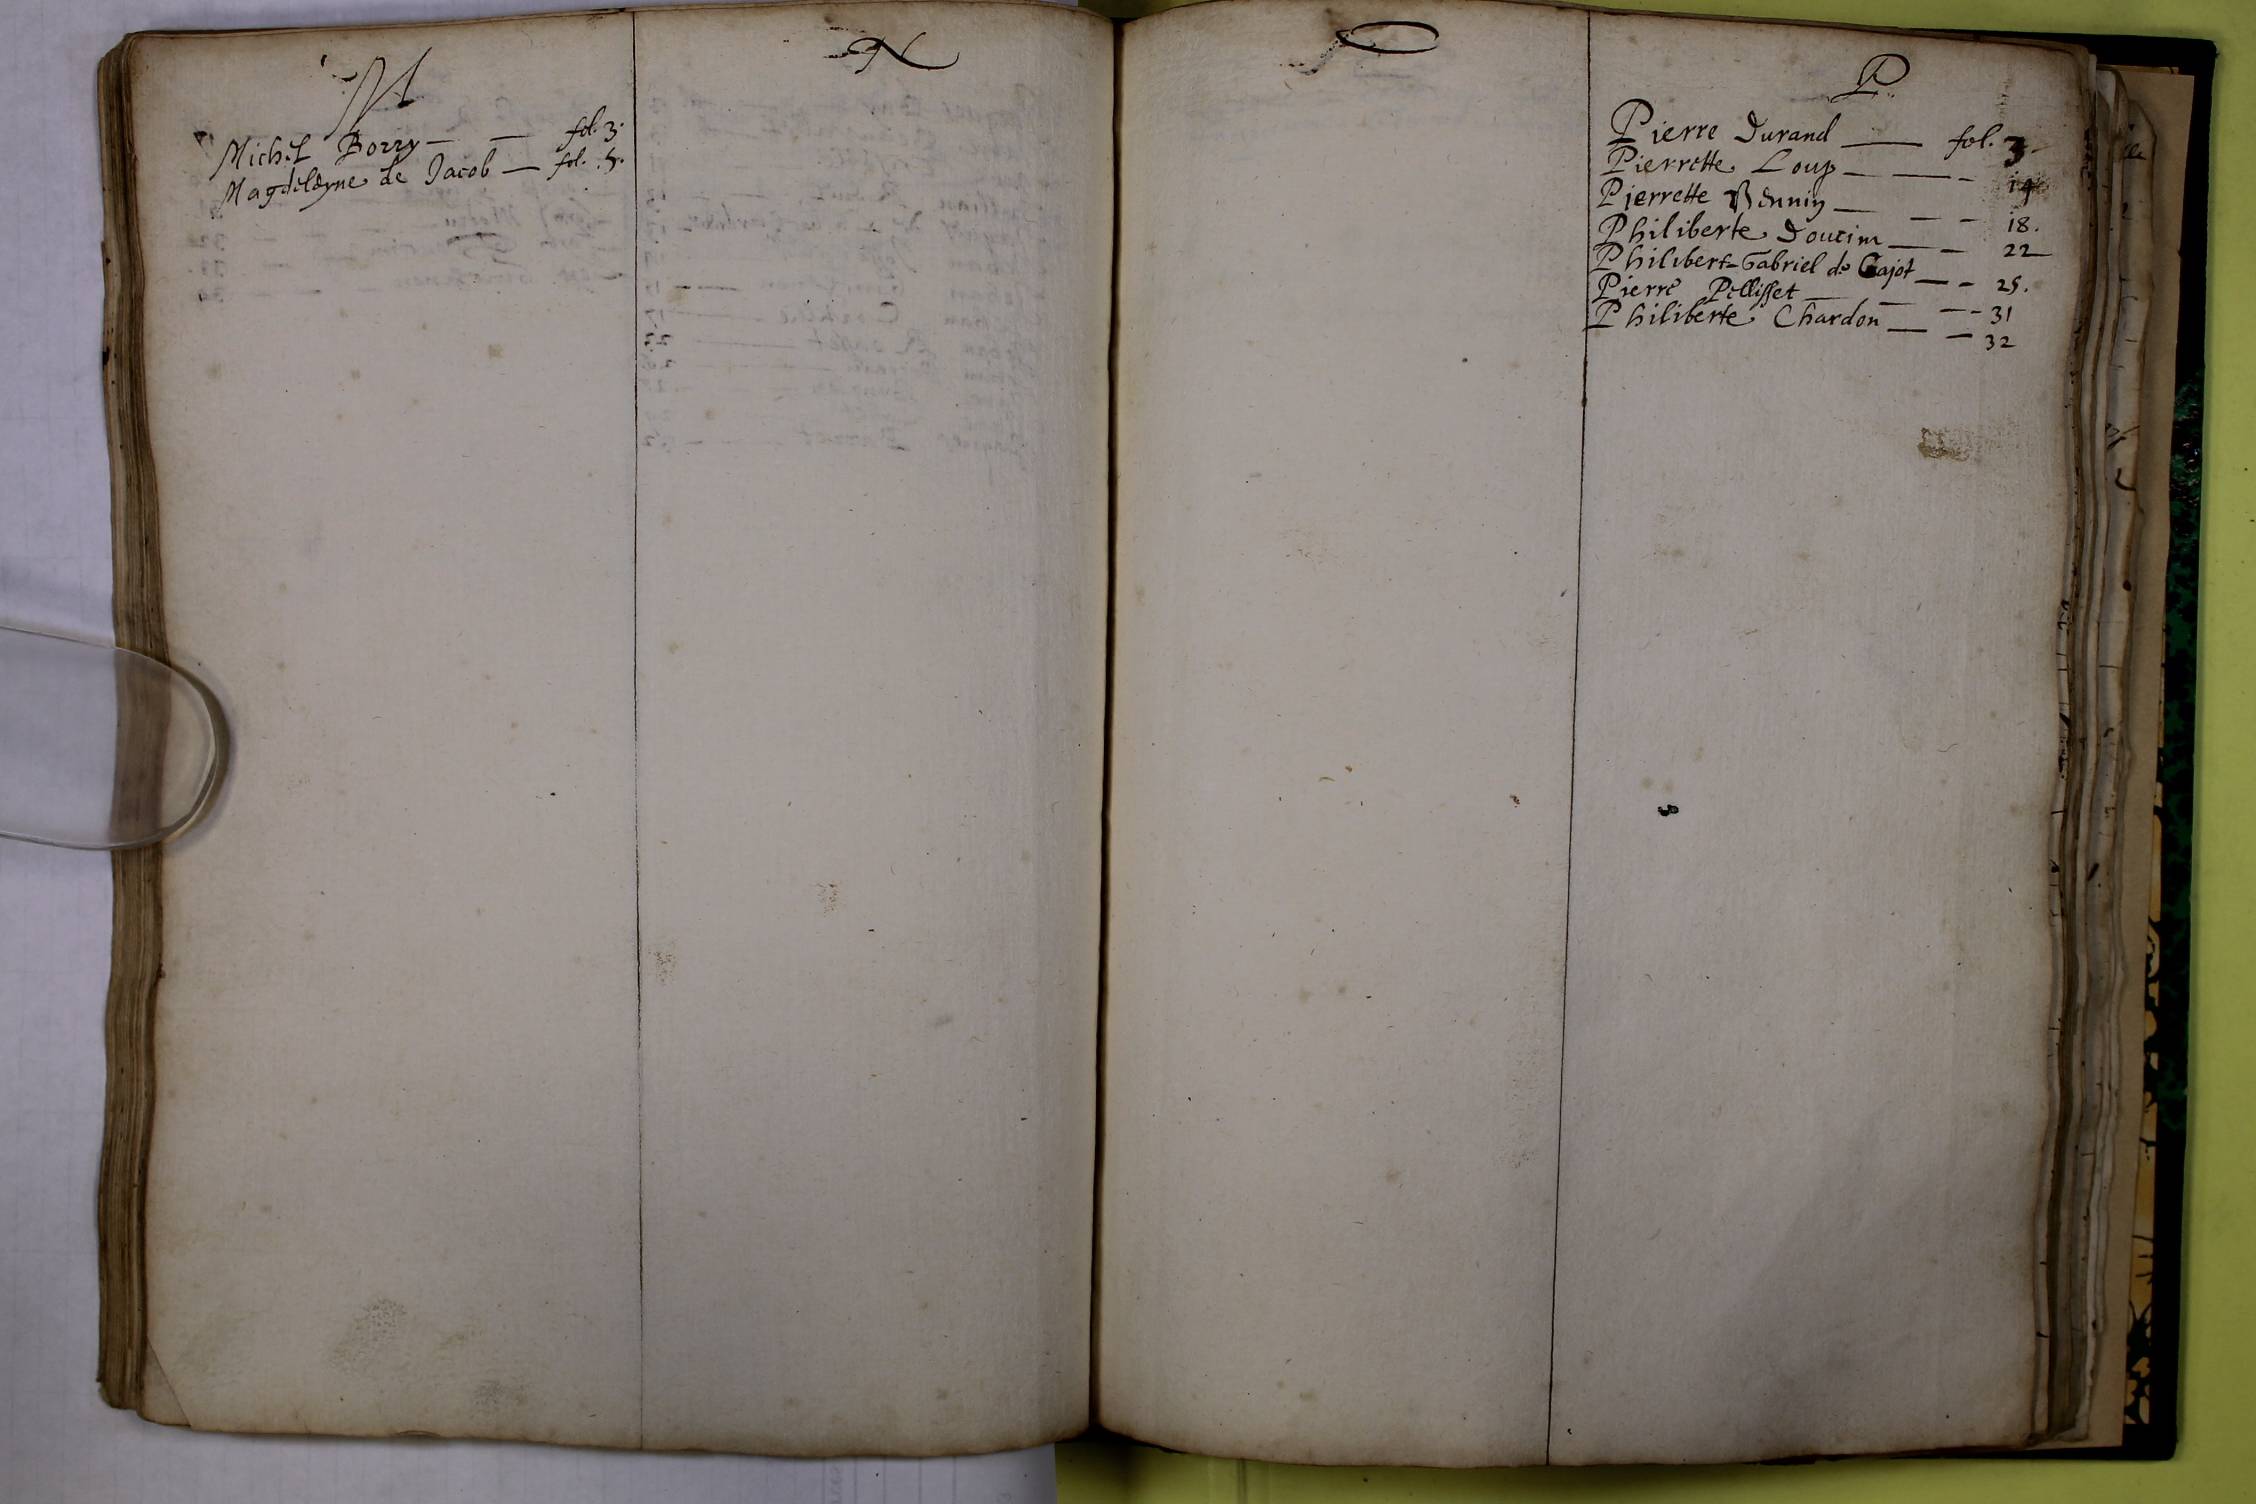 M
Michel Borry — — fol. 3.
Magdeleyne de Jacob — fol. 5.
N
O
P.
Pierre Durand — fol. 3.
Pierrette Loup — — - 14
Pierrette — — - 18.
Philiberte Doucin — - 22
Philibert-Gabriel de Cajot — - 25.
Pierre Pellisset — — -- 31
Philiberte Chardon — — 32